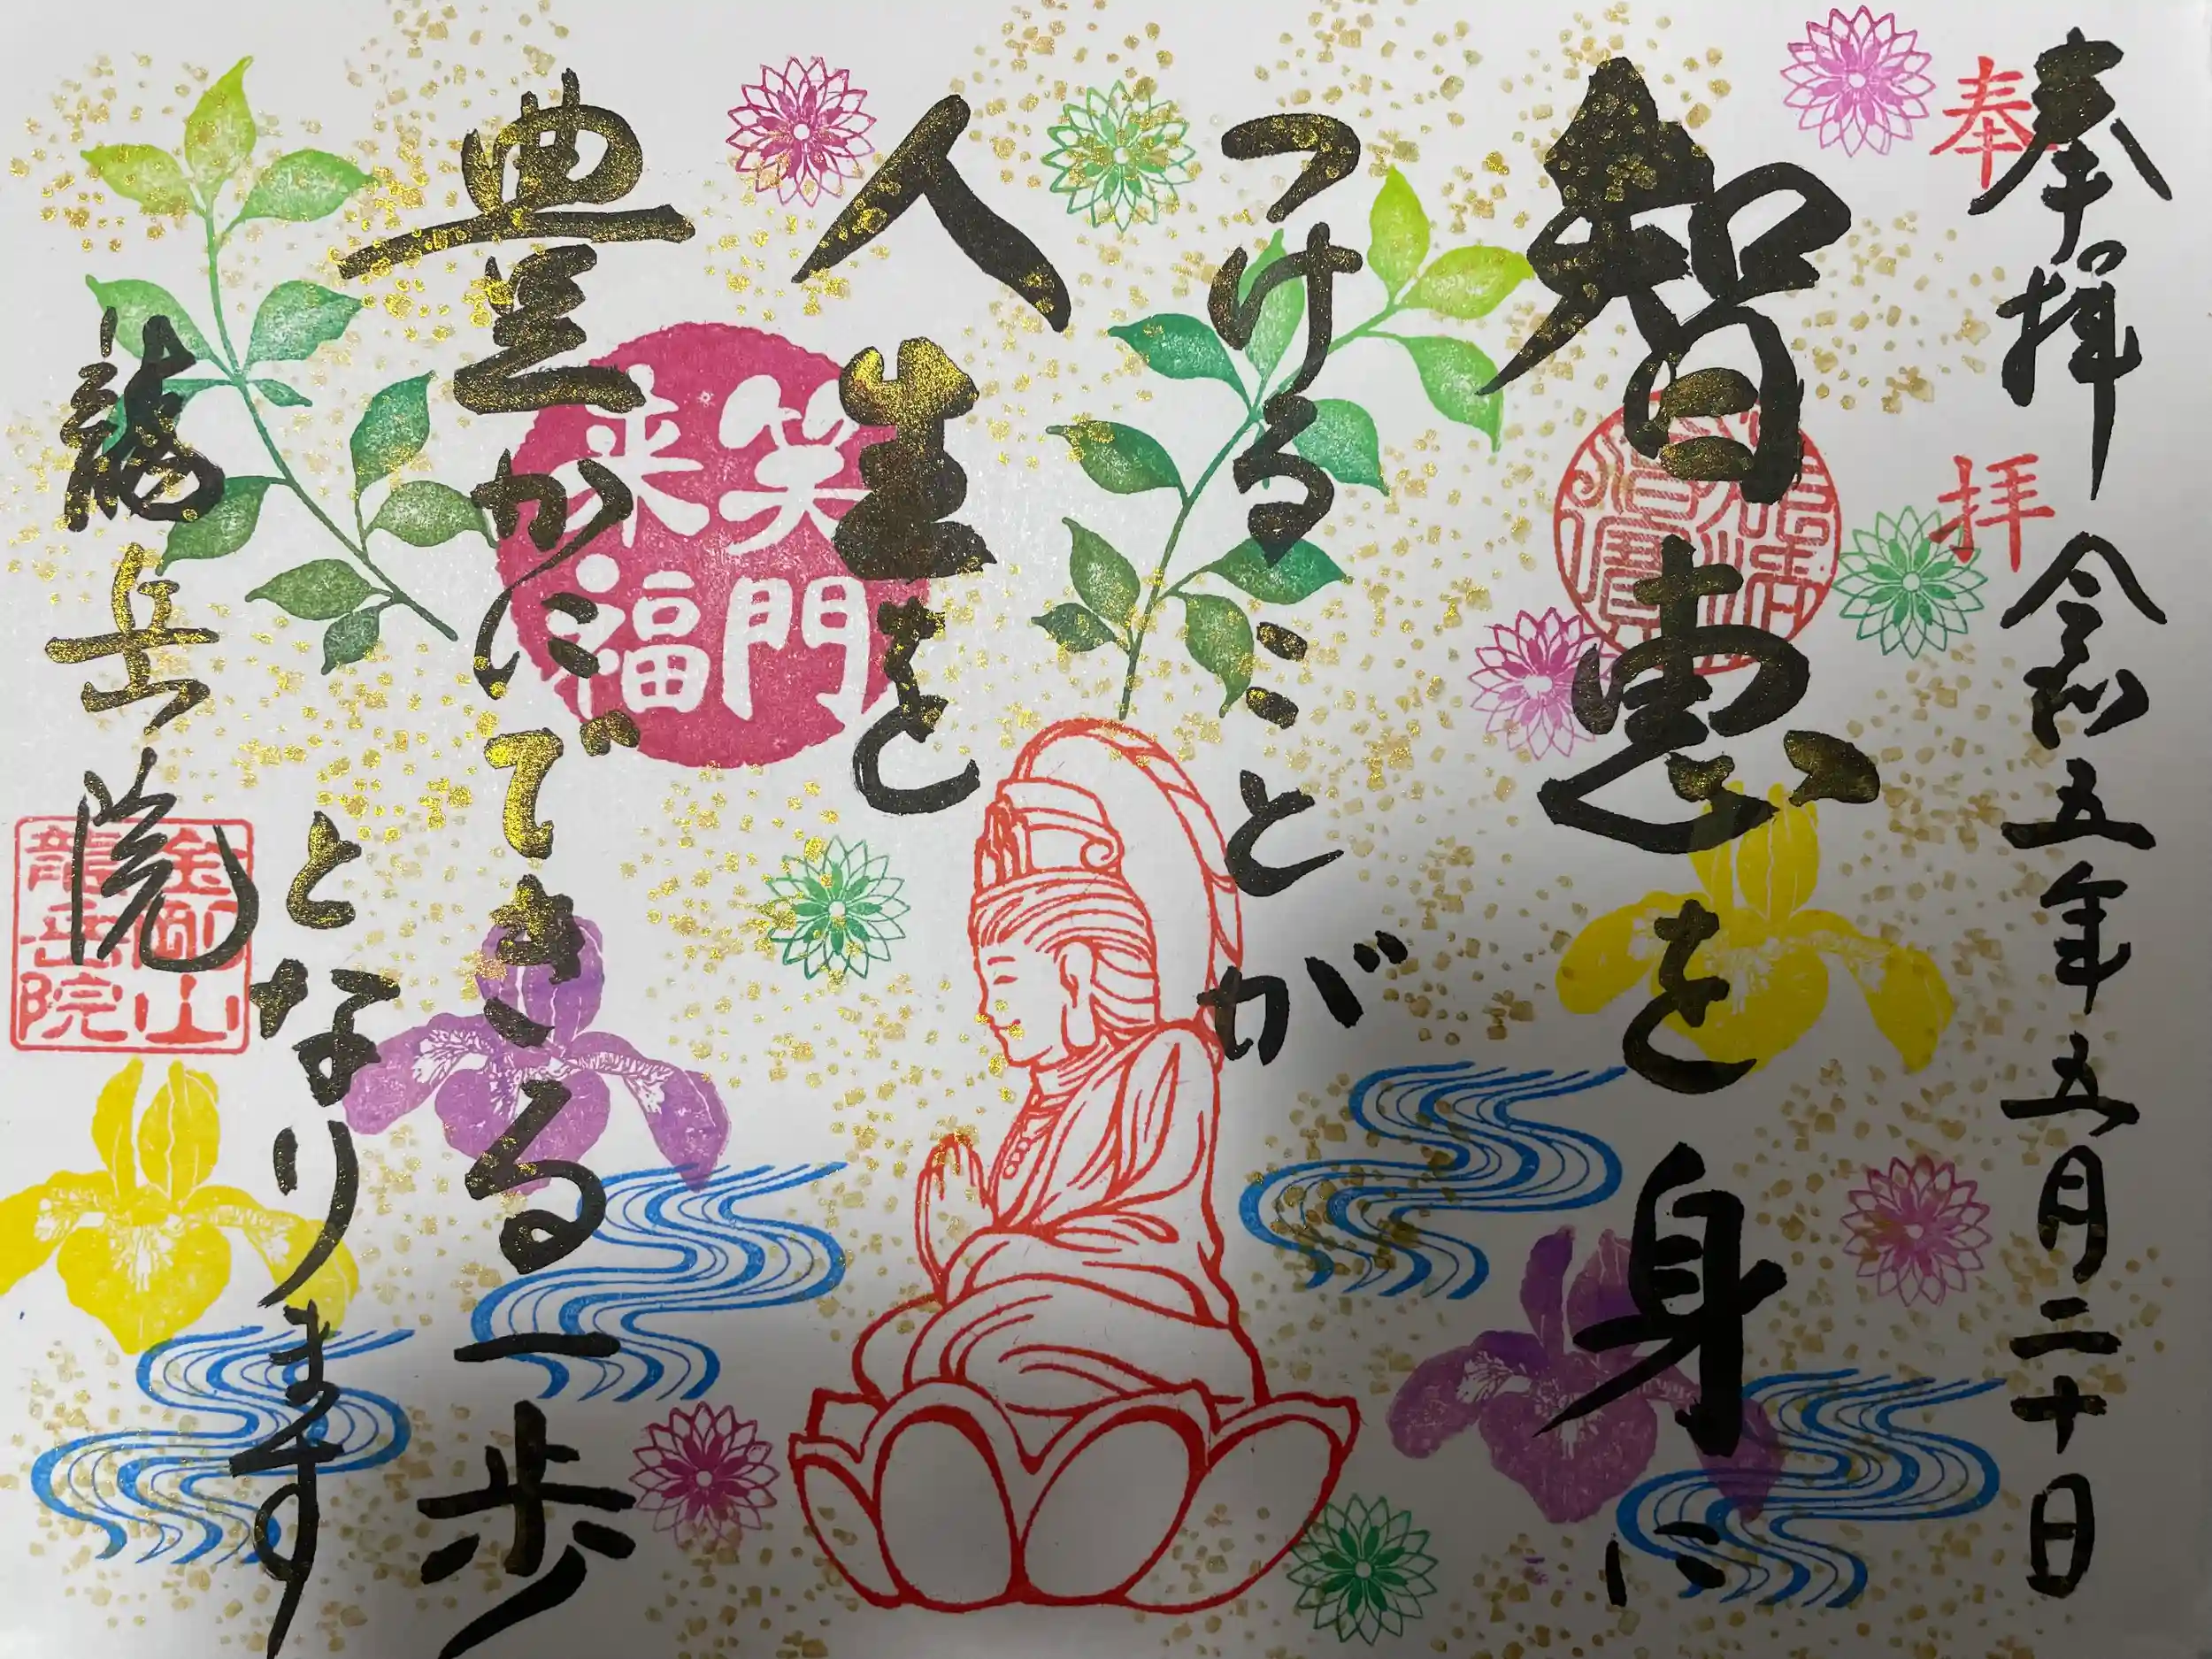 奉拝 令和五年五月二十日
奉拝
智恵を身に
つけることが
人生を
豊かにできる一歩
となります
龍岳院
笑門来福
佛法僧寶
金剛山龍岳院